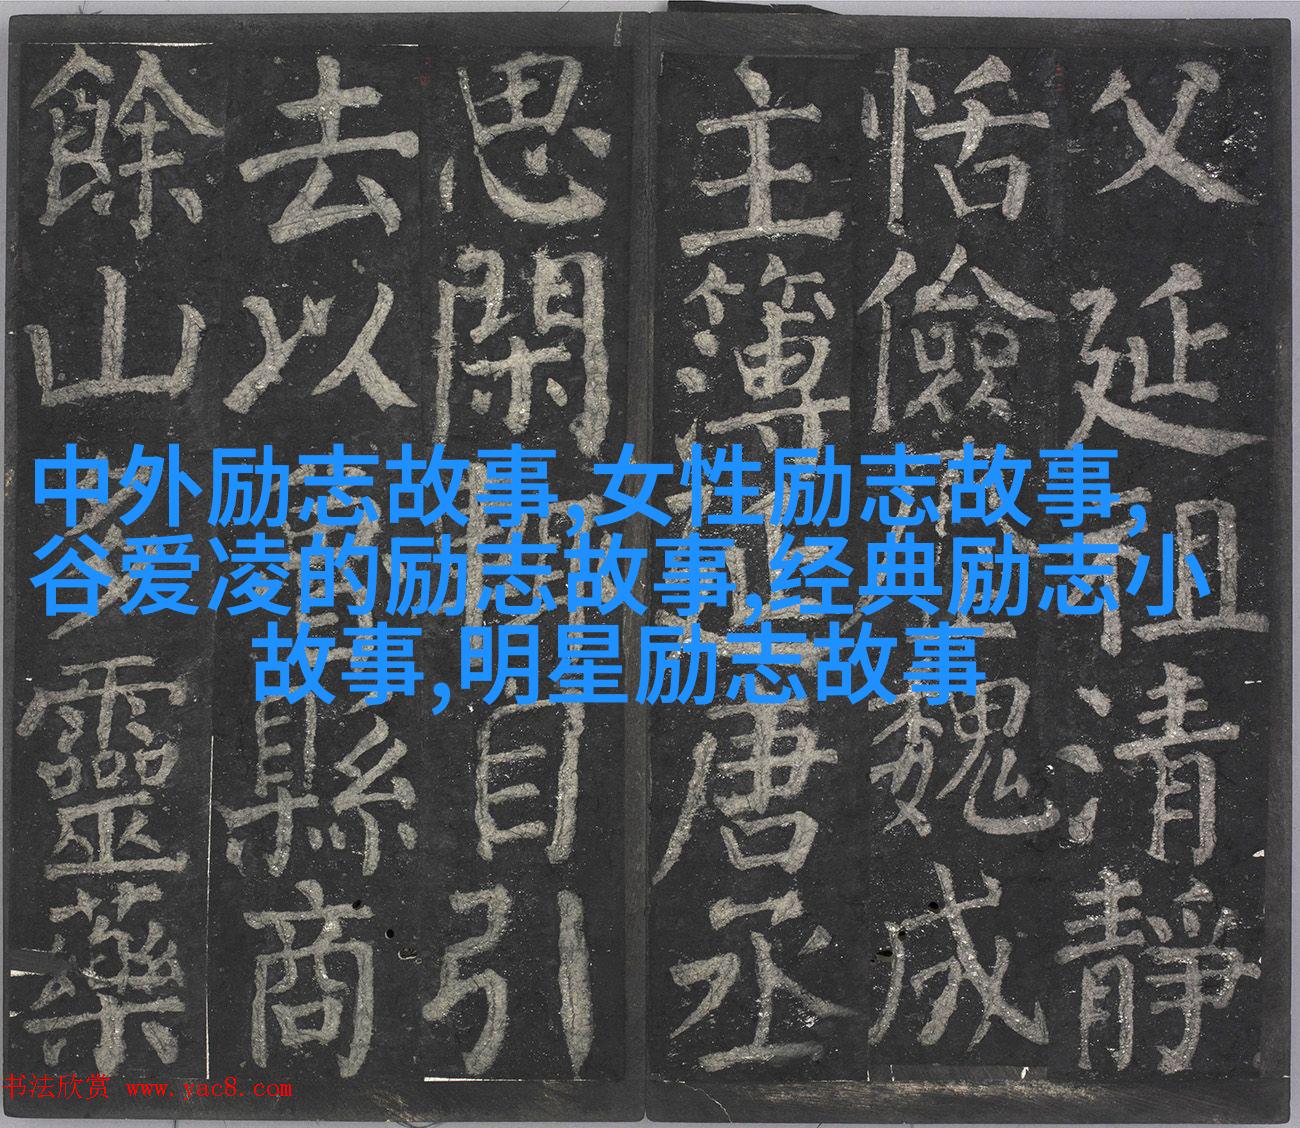 父延祖清靜
恬儉魏成
主簿唐丞
思閑引
去以縣商
餘山多靈藥
中外励志故事,女性励志故事,
谷爱凌的励志故事,经典励志小
故事,明星励志故事
书法欣赏 www.yac8.com